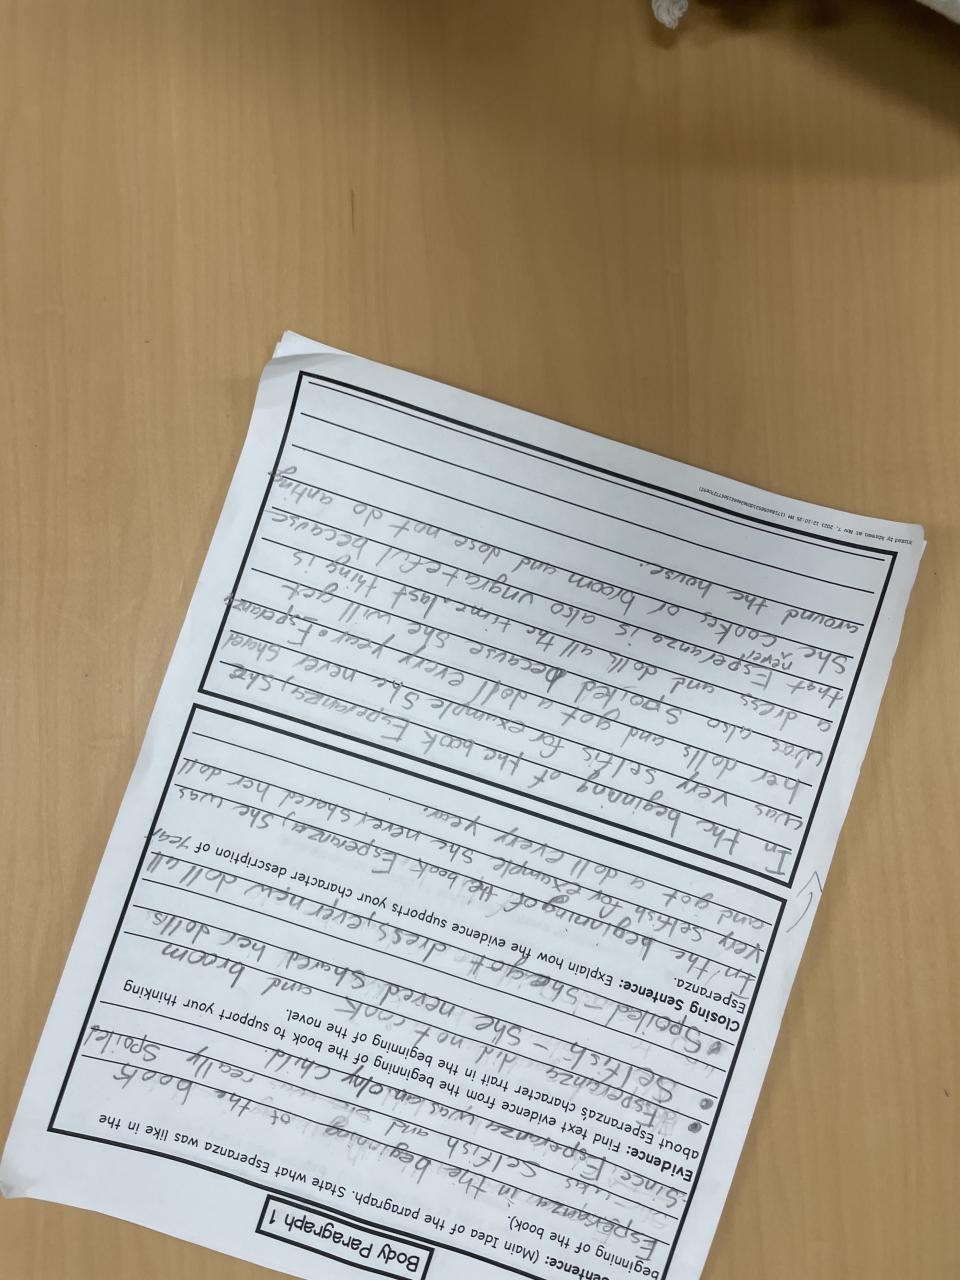 Body Paragraph 1
Sentence: (Main Idea of the paragraph. State what Esperanza was like in the
beginning of the book).
Esperanza in the beginning of the book
was Selfish and really Spoiled
Since Esperanza was an only child.
Evidence: Find text evidence from the beginning of the book to support your thinking
about Esperanza's character trait in the beginning of the novel.
Esperanza did not cook and broom
Selfish - She nered Shared her dolls.
Spoiled - She got dress, ever new doll all
year
Closing Sentence: Explain how the evidence supports your character description of
Esperanza.
In the beginning of the book Esperanza, She was
very selfish for example She never shared her doll
and got a doll every year.
In the beginning of the book Esperanza, She
was very selfis for example She never shared
her dolls and got a doll every year. Esperanza
was also spoiled because She will get
a dress and dolls all the time. last thing is
that Esperanza is also ungrateful because
She never cooks or broom and dose not do anting
around the house.